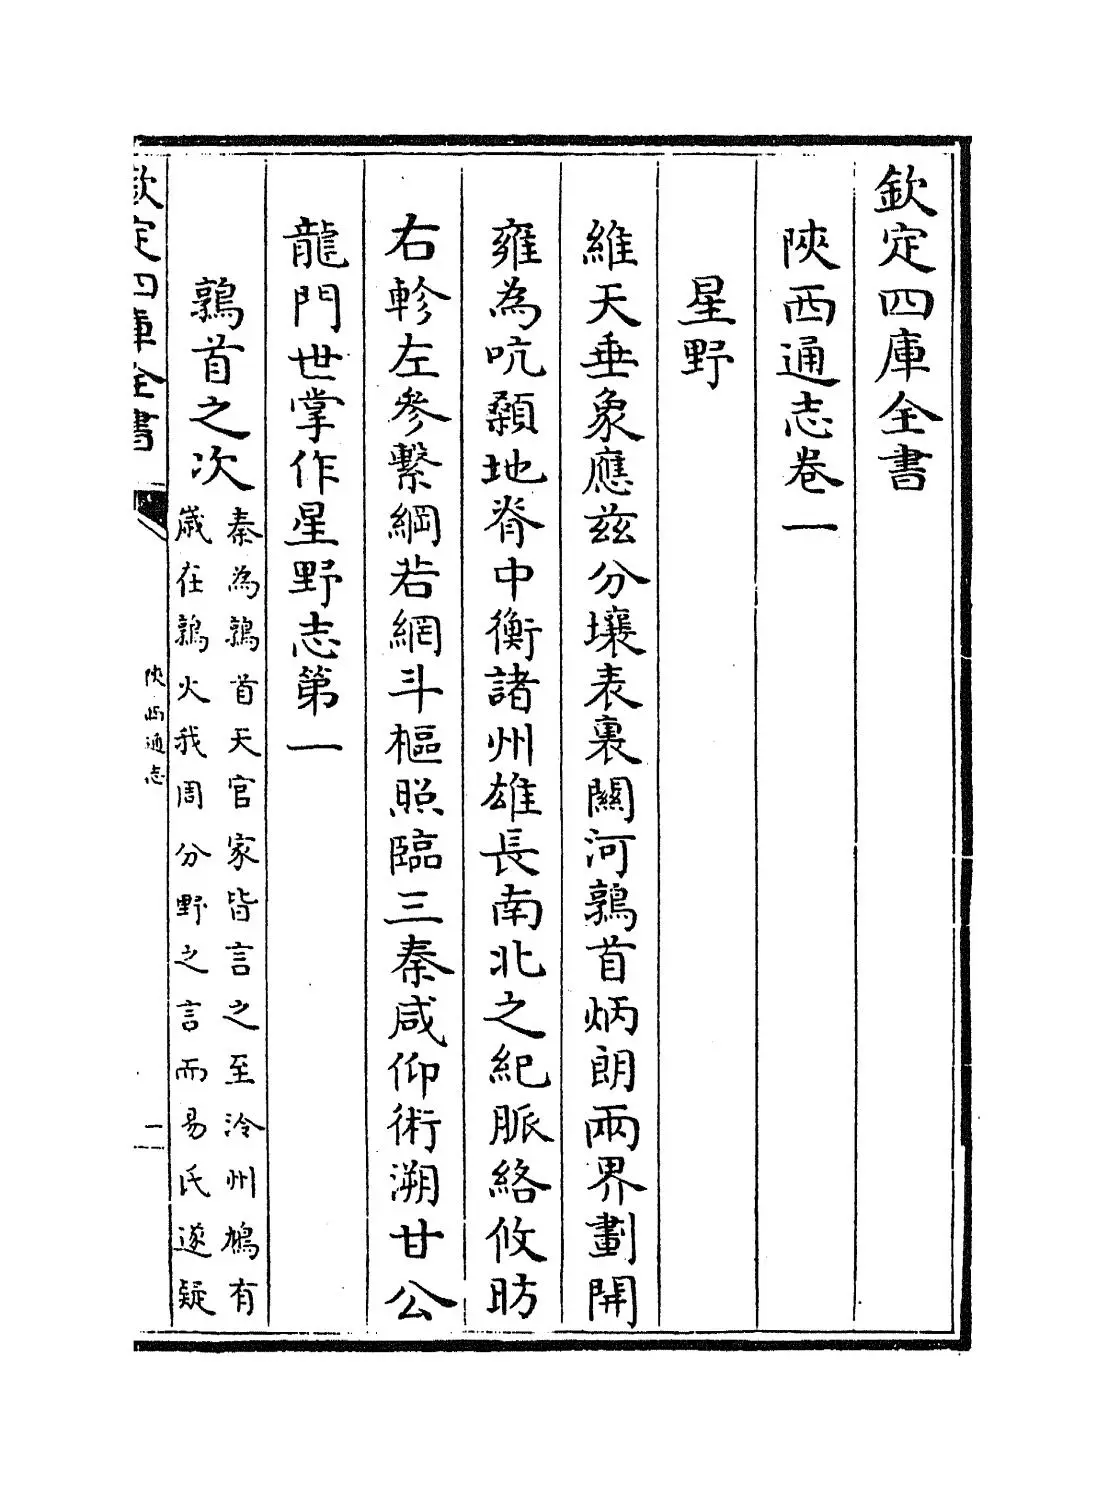 欽定四庫全書
陝西通志卷一
星野
維天垂象應兹分壤表裏關河鶉首炳朗兩界劃開
雍為吭顙地脊中衡諸州雄長南北之紀脈絡攸昉
右軫左參繫綱若網斗樞照臨三秦咸仰術溯甘公
龍門世掌作星野志第一
鶉首之次
秦為鶉首天官家皆言之至泠州鳩有
歲在鶉火我周分野之言而易氏遂疑
欽定四庫全書
陝西通志
一